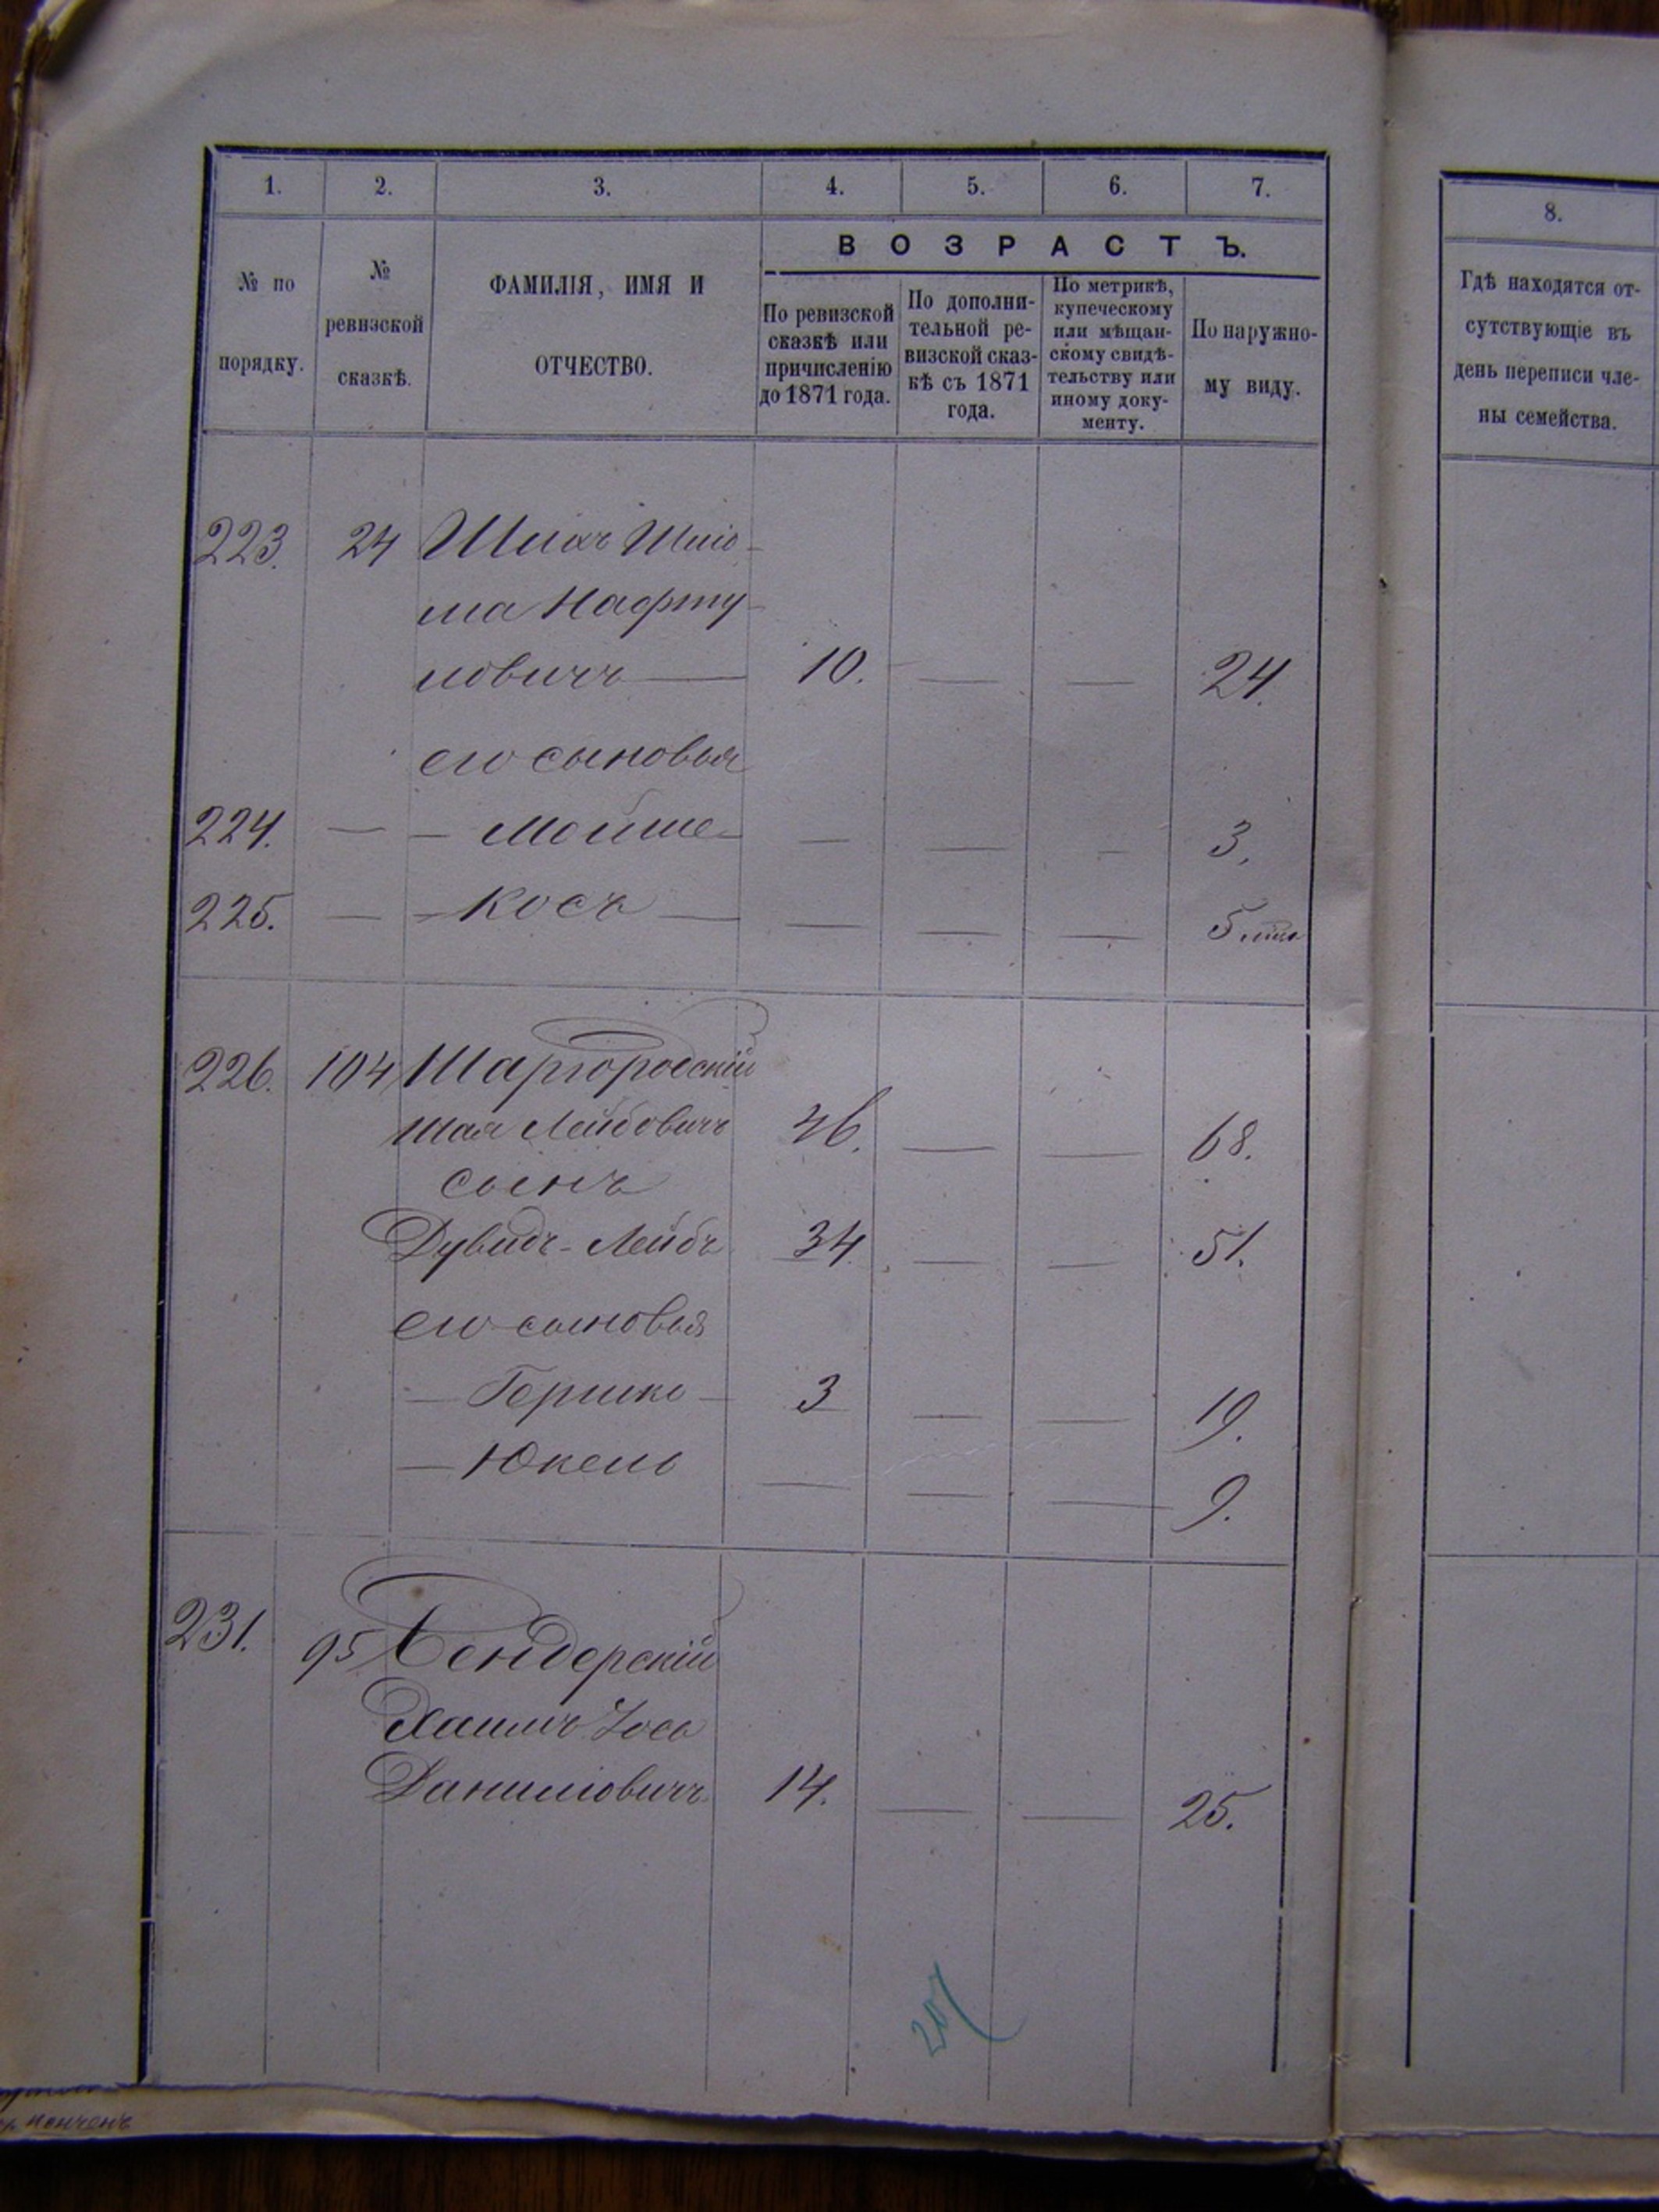 1. 2. 3. 4. 5. 6. 7.
№ по порядку.
№ ревизской сказкѣ.
ФАМИЛІЯ, ИМЯ И
ОТЧЕСТВО.
ВОЗРАСТЪ.
По ревизской
сказкѣ или
причисленію
до 1871 года.
По дополни-
тельной ре-
визской сказ-
кѣ съ 1871
года.
По метрикѣ,
купеческому
или мѣщан-
скому свидѣ-
тельству или
иному доку-
менту.
По наружно-
му виду.
223. 24 Шлахъ Шліо-
ма Нафту-
ловичъ — 10. — — 24.
его сыновья
224. — — Мойше — — — — 3.
225. — — Кось — — — — 5
226. 104 Шаргородскій
Шая Лейбовичъ 46. — — 68.
сынъ
Дувидъ-Лейбъ 34 — — 51.
его сыновья
— Гершко — 3 — — 19.
— Юкель — — — 9.
231. 95 Бендерскій
Хаимъ Іось
Даниловичъ 14. — — 25.
207
8.
Гдѣ находятся от-
сутствующіе въ
день переписи чле-
ны семейства.